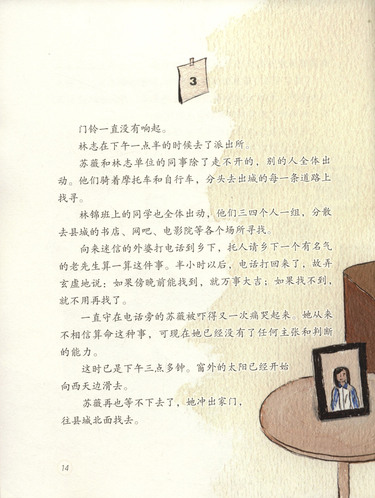 3
门铃一直没有响起。
林志在下午一点半的时候去了派出所。
苏薇和林志单位的同事除了走不开的，别的人全体出
动。他们骑着摩托车和自行车，分头去出城的每一条道路上
找寻。
林锦班上的同学也全体出动，他们三四个人一组，分散
去县城的书店、网吧、电影院等各个场所寻找。
向来迷信的外婆打电话到乡下，托人请乡下一个有名气
的老先生算一算这件事。半小时以后，电话打回来了，故弄
玄虚地说：如果傍晚前能找到，就万事大吉；如果找不到，
就不用再找了。
一直守在电话旁的苏薇被吓得又一次痛哭起来。她从来
不相信算命这种事，可现在她已经没有了任何主张和判断
的能力。
这时已是下午三点多钟。窗外的太阳已经开始
向西天边滑去。
苏薇再也等不下去了，她冲出家门，
往县城北面找去。
14